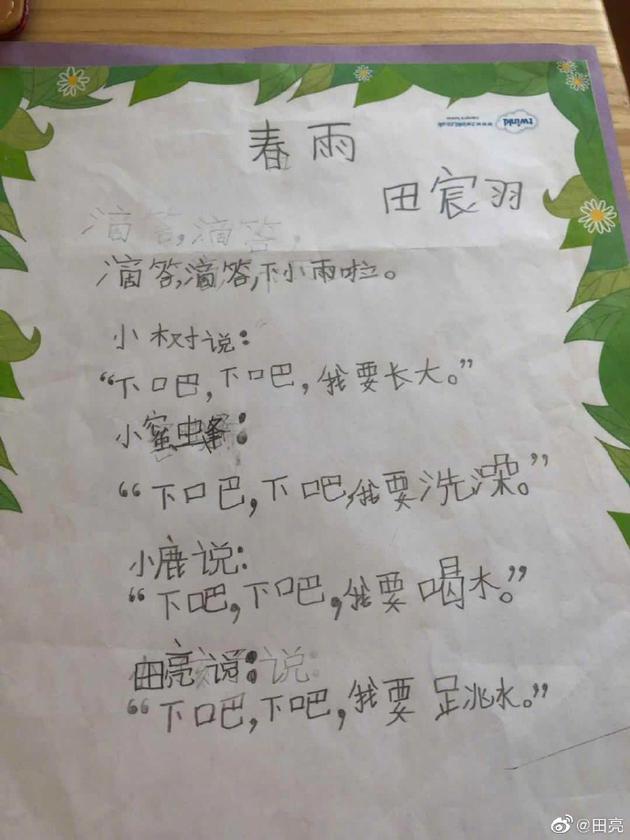 春雨
www.twinkl.co.uk
twinkl
田宸羽
滴答,滴答,
滴答,滴答,下小雨啦。
小树说:
“下吧,下吧,我要长大。”
小蜜蜂:
“下吧,下吧,我要洗澡。”
小鹿说:
“下吧,下吧,我要喝木。”
田亮说:说:
“下吧,下吧,我要跳水。”
@田亮